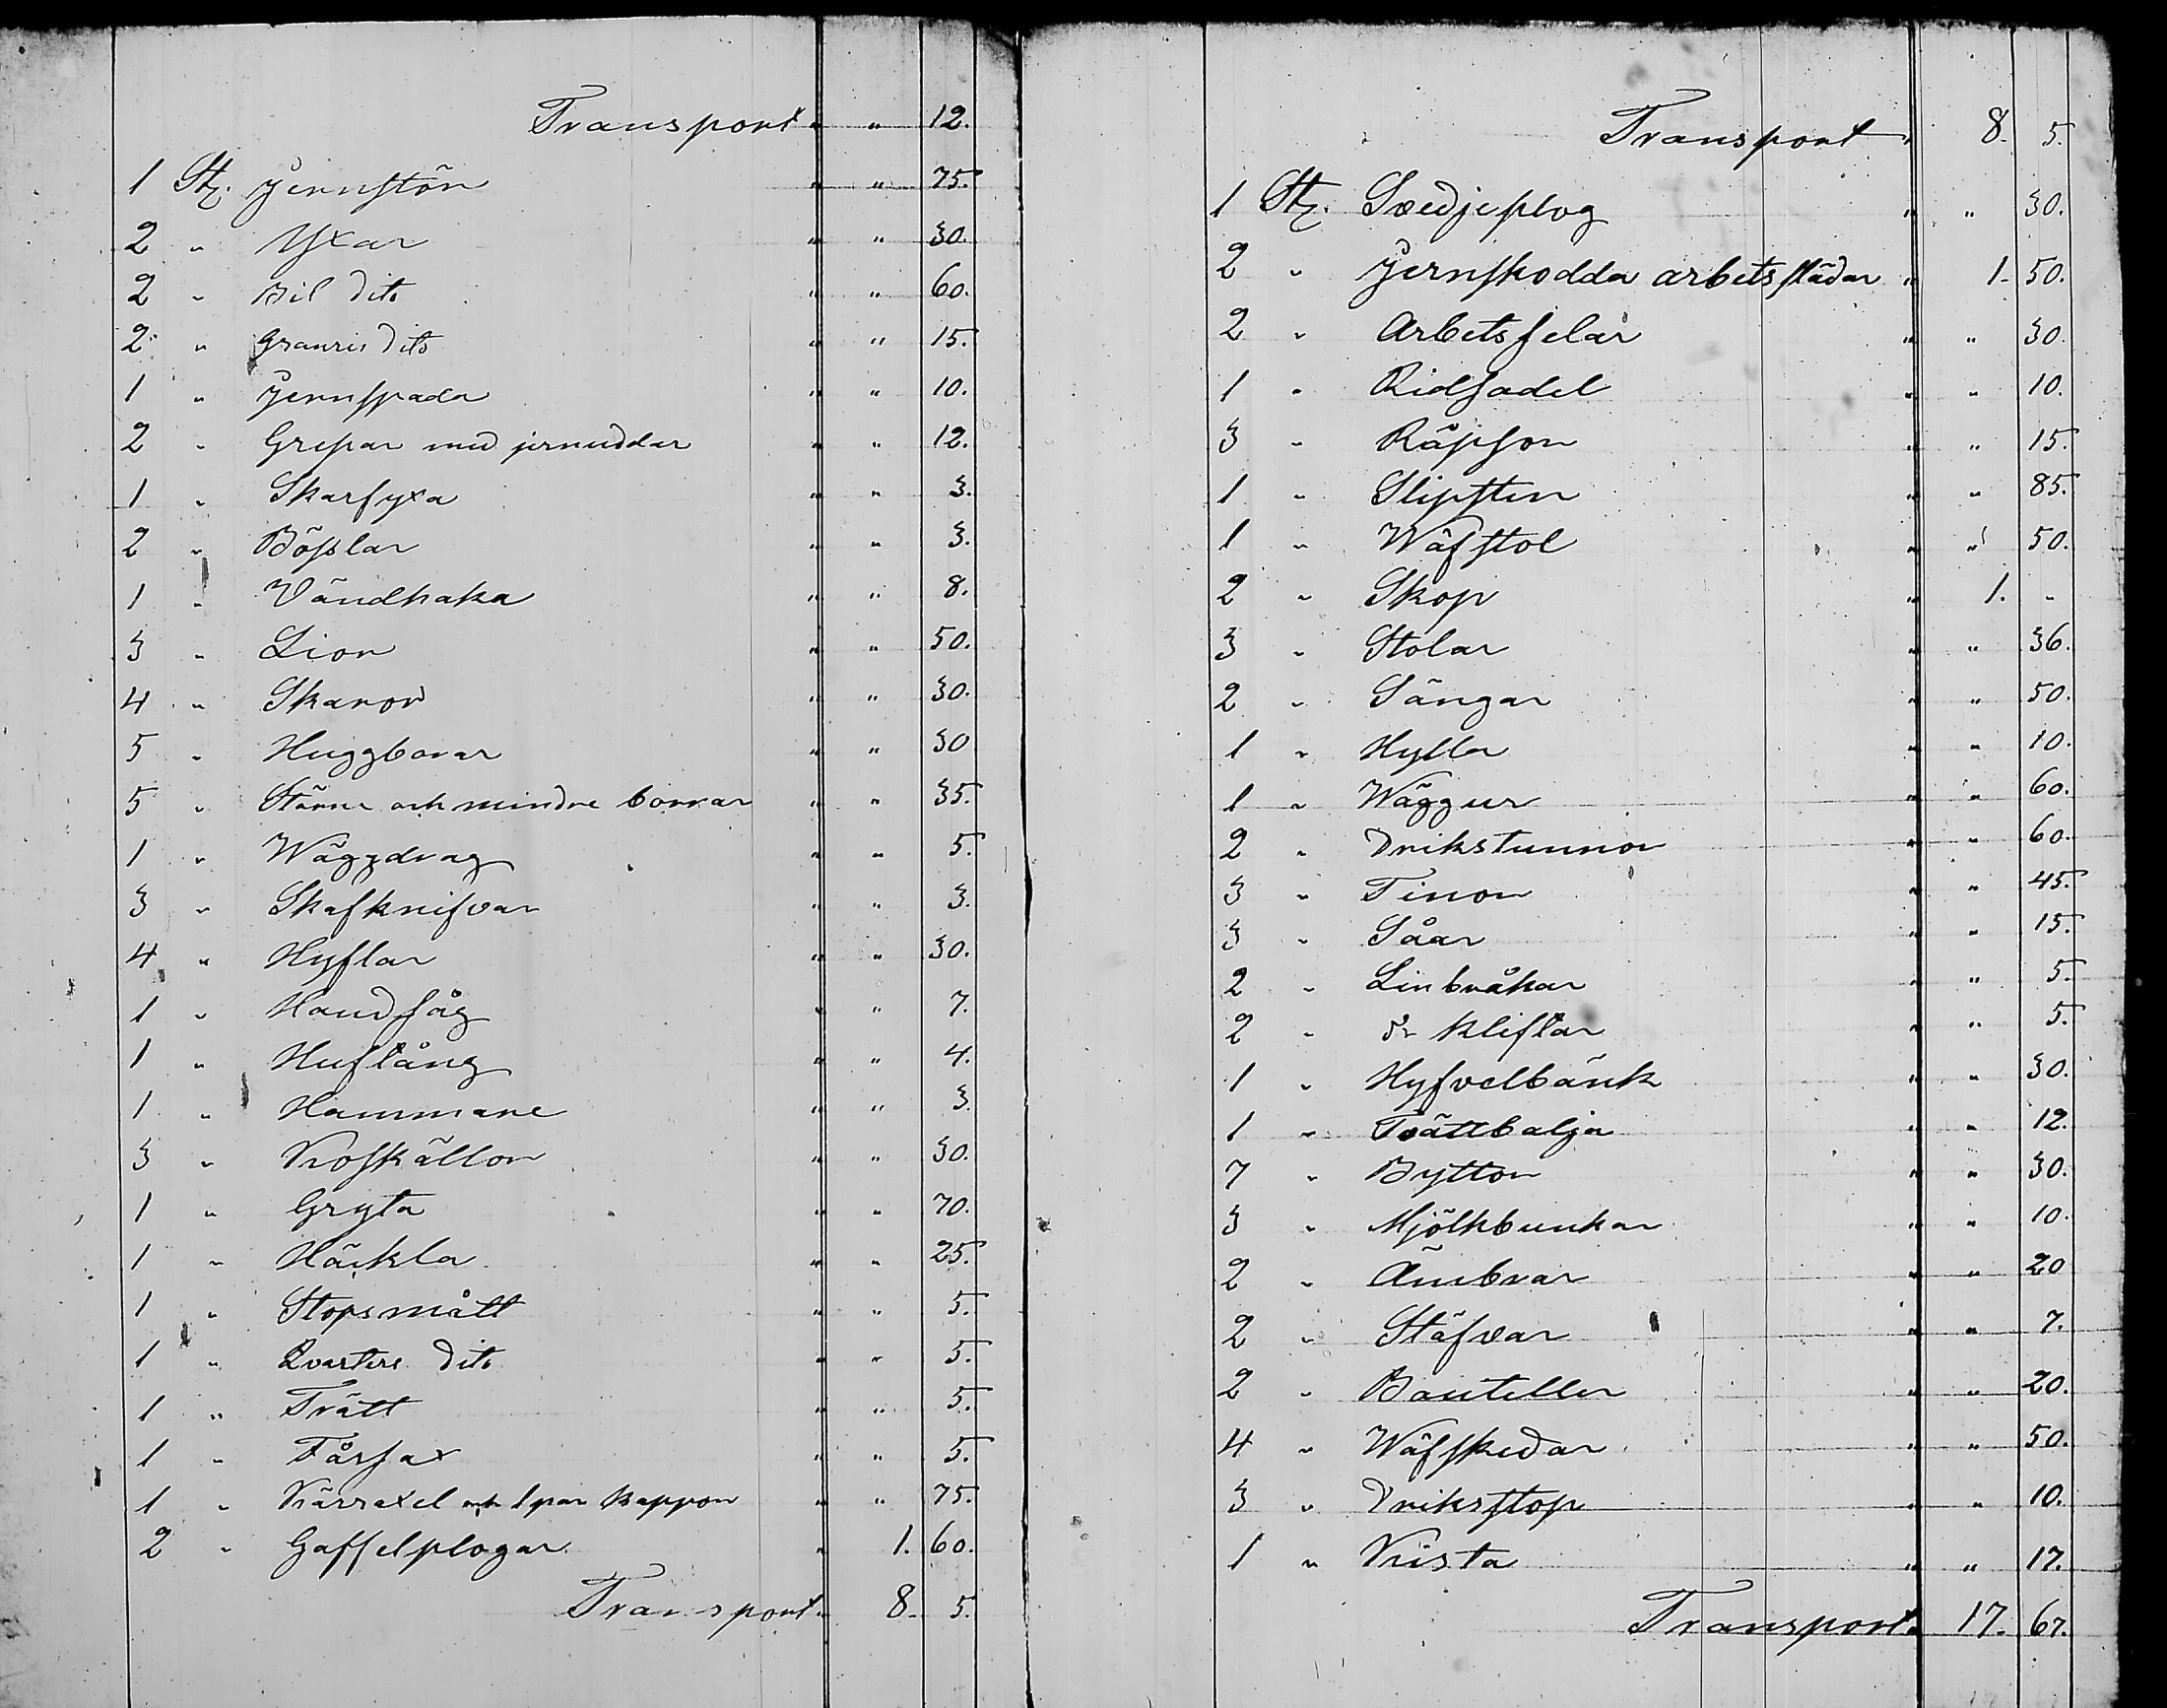 Transport " " 12.
1 St. Jernstör " " 75.
2 " Yxar " " 30.
2 " Bil dito " " 60.
2 " Granris dito " " 15.
1 " Jernspada " " 10.
2 " Grepar med jernuddar " " 12.
1 " Skarfyxa " " 3.
2 " Bösslar " " 3.
1 " Vändhaka " " 8.
3 " Lior " " 50.
4 " Skaror " " 30.
5 " Huggborar " " 30
5 " Större och mindre borrar " " 35.
1 " Wäggdrag " " 5.
3 " Skafknifvar " " 3.
4 " Hyflar " " 30.
1 " Handsåg " " 7.
1 " Huftång " " 4.
1 " Hammare " " 3.
3 " Koskällor " " 30.
1 " Gryta " " 70.
1 " Häckla " " 25.
1 " Stopsmått " " 5.
1 " Qvarters dito " " 5.
1 " Trätt " " 5.
1 " Fårsax " " 5.
1 " Kärraxel och 1 par Kappor " " 75.
2 " Gaffelplogar " 1. 60.
Transport " 8. 5.
Transport " 8. 5.
1 St. Svedjeplog " " 30.
2 " Jernskodda arbetsslädar " 1. 50.
2 " Arbetsselar " " 30.
1 " Ridsadel " " 10.
3 " Räpson " " 15.
1 " Slipsten " " 85.
1 " Wäfstol " " 50.
2 " Skåp " 1. "
3 " Stolar " " 36.
2 " Sängar " " 50.
1 " Hylla " " 10.
1 " Wäggur " " 60.
2 " Drikstunnor " " 60.
3 " Tinor " " 45.
3 " Såar " " 15.
2 " Linbråkar " " 5.
2 " do kliftar " " 5.
1 " Hyfvelbänk " " 30.
1 " Tvättbalja " " 12.
7 " Byttor " " 30.
3 " Mjölkbunkar " " 10.
2 " Ämbrar " " 20
2 " Stäfvar " " 7.
2 " Bouteller " " 20.
4 " Wäfskedar " " 50.
3 " Driksstop " " 10.
1 " Kista " " 17.
Transport " 17. 67.